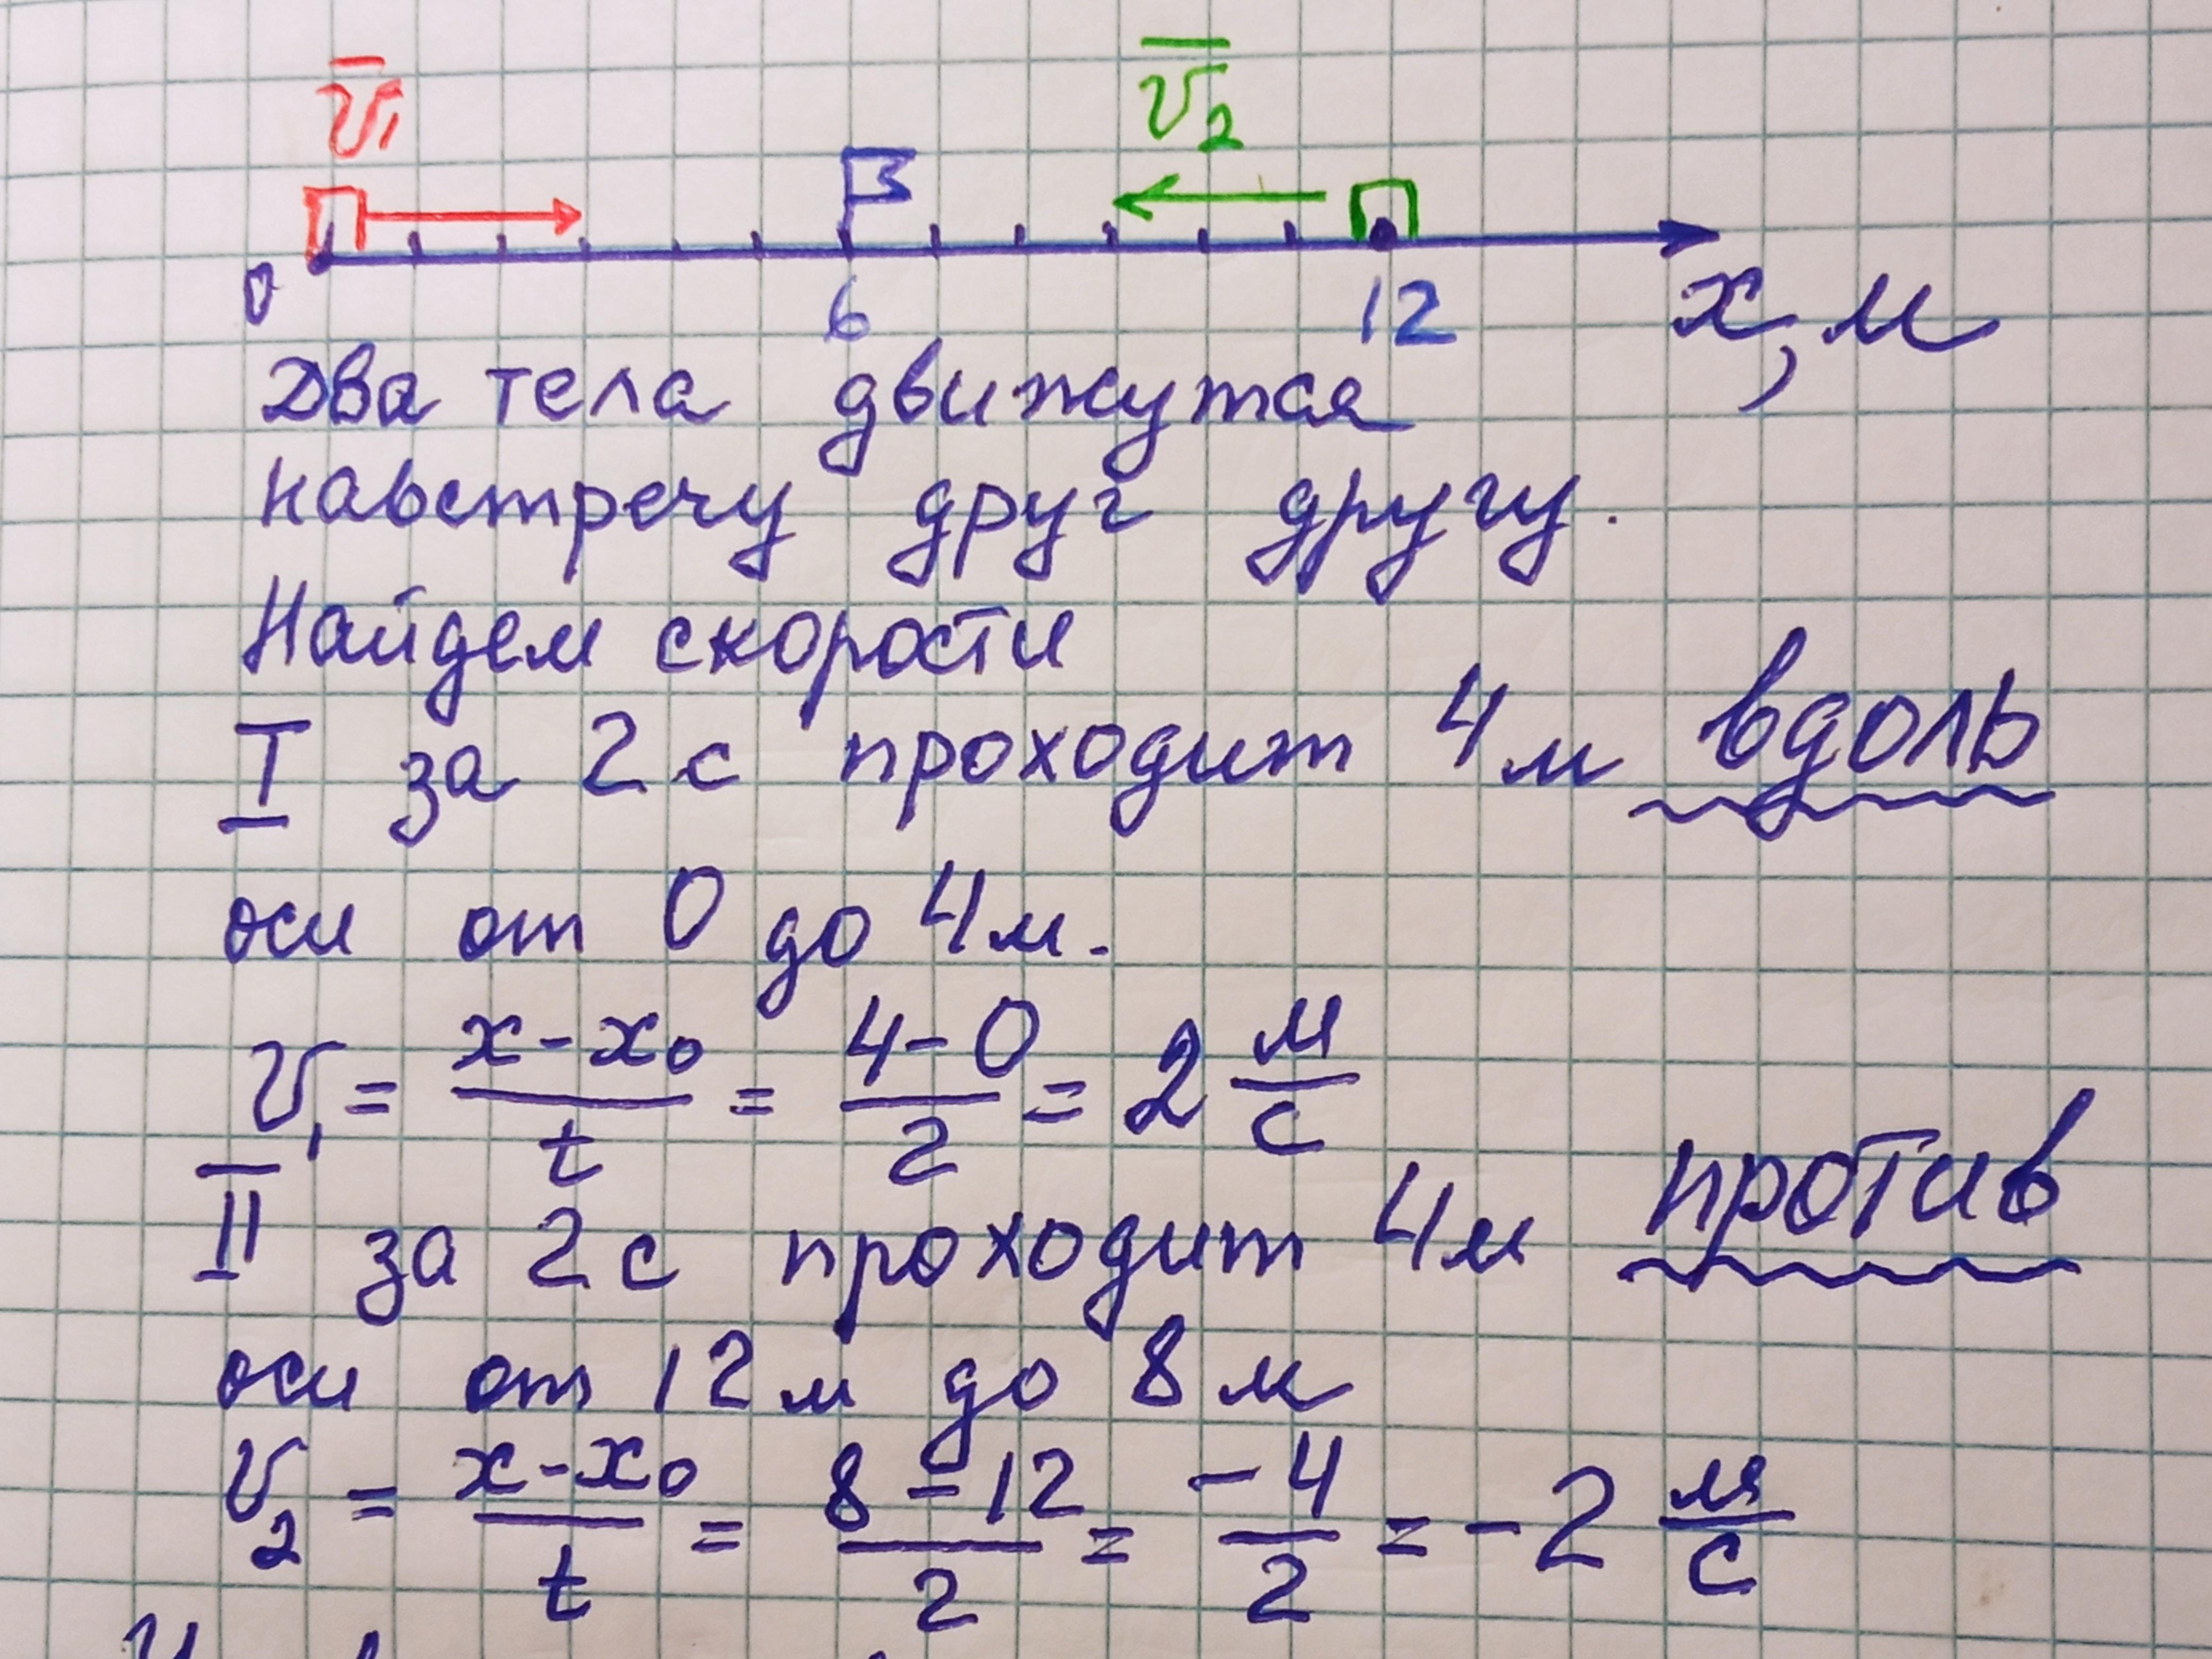 v̅₁ v̅₂
0 6 12 x, м
Два тела движутся
навстречу друг другу.
Найдем скорости
I за 2 с проходит 4 м вдоль
оси от 0 до 4 м.
v₁ = (x - x₀)/t = (4 - 0)/2 = 2 м/с
II за 2 с проходит 4 м против
оси от 12 м до 8 м
v₂ = (x - x₀)/t = (8 - 12)/2 = -4/2 = -2 м/с